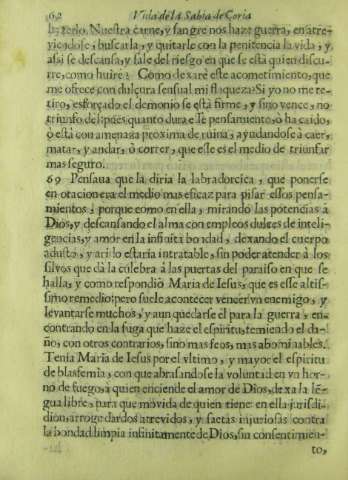 162 Vida de la Sabia de Coria
hazerlo. Nuestra carne, y sangre nos haze guerra, en atre-
viendose, buscarla, y quitarle con la penitencia la vida, y
assi se descansa, y sale del riesgo en que se està quien discu-
rre, como huirè? Como dexarè este acometimiento, que
me ofrece con dulçura sensual mi flaqueza? Si yo no me re-
tiro, esforçado el demonio se està firme, y sino vence, no
triunfo despues, quanto dura este pensamiento, ò ha caido,
ò està con amenaza proxima de ruina, ayudandose à caer,
matar, y andar, ò correr, que este es el medio de triunfar
mas seguro.
69 Pensaua que la diria la labradorcica, que ponerse
en oracion era el medio mas eficaz para pisar essos pensa-
mientos, porque como en ella, mirando las potencias à
Dios, y descansando el alma con empleos dulces de inteli-
gencias, y amor en la infinita bondad, dexando el cuerpo
adusto, y arido estaria intratable, sin poder atender à los
silvos que dà la culebra à las puertas del paraiso en que se
halla, y como respondiò Maria de Iesus, que es esse altis-
simo remedio: pero suele acontecer vencer vn enemigo, y
levantarse muchos, y aun quedarse el para la guerra, en-
contrando en la fuga que haze el espiritu, temiendo el da-
ño, con otros contrarios, sino mas feos, mas abominables.
Tenia Maria de Iesus por el vltimo, y mayor el espiritu
de blasfemia, con que abrasandose la voluntad en vn hor-
no de fuego, à quien enciende el amor de Dios, dexa la lē-
gua libre, para que movida de quien tiene en ella jurisdi-
dion, arroge dardos atrevidos, y saetas injuriosas contra
la bondad limpia infinitamente de Dios, sin consentimien-
to,